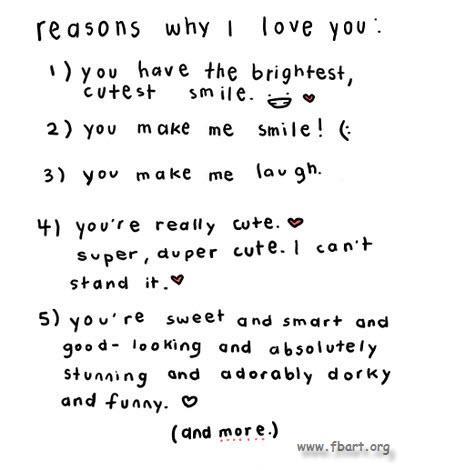 reasons why I love you:
1) you have the brightest,
cutest smile.
2) you make me smile! (:
3) you make me laugh.
4) you're really cute.
super, duper cute. I can't
stand it.
5) you're sweet and smart and
good-looking and absolutely
stunning and adorably dorky
and funny.
(and more.)
www.fbart.org